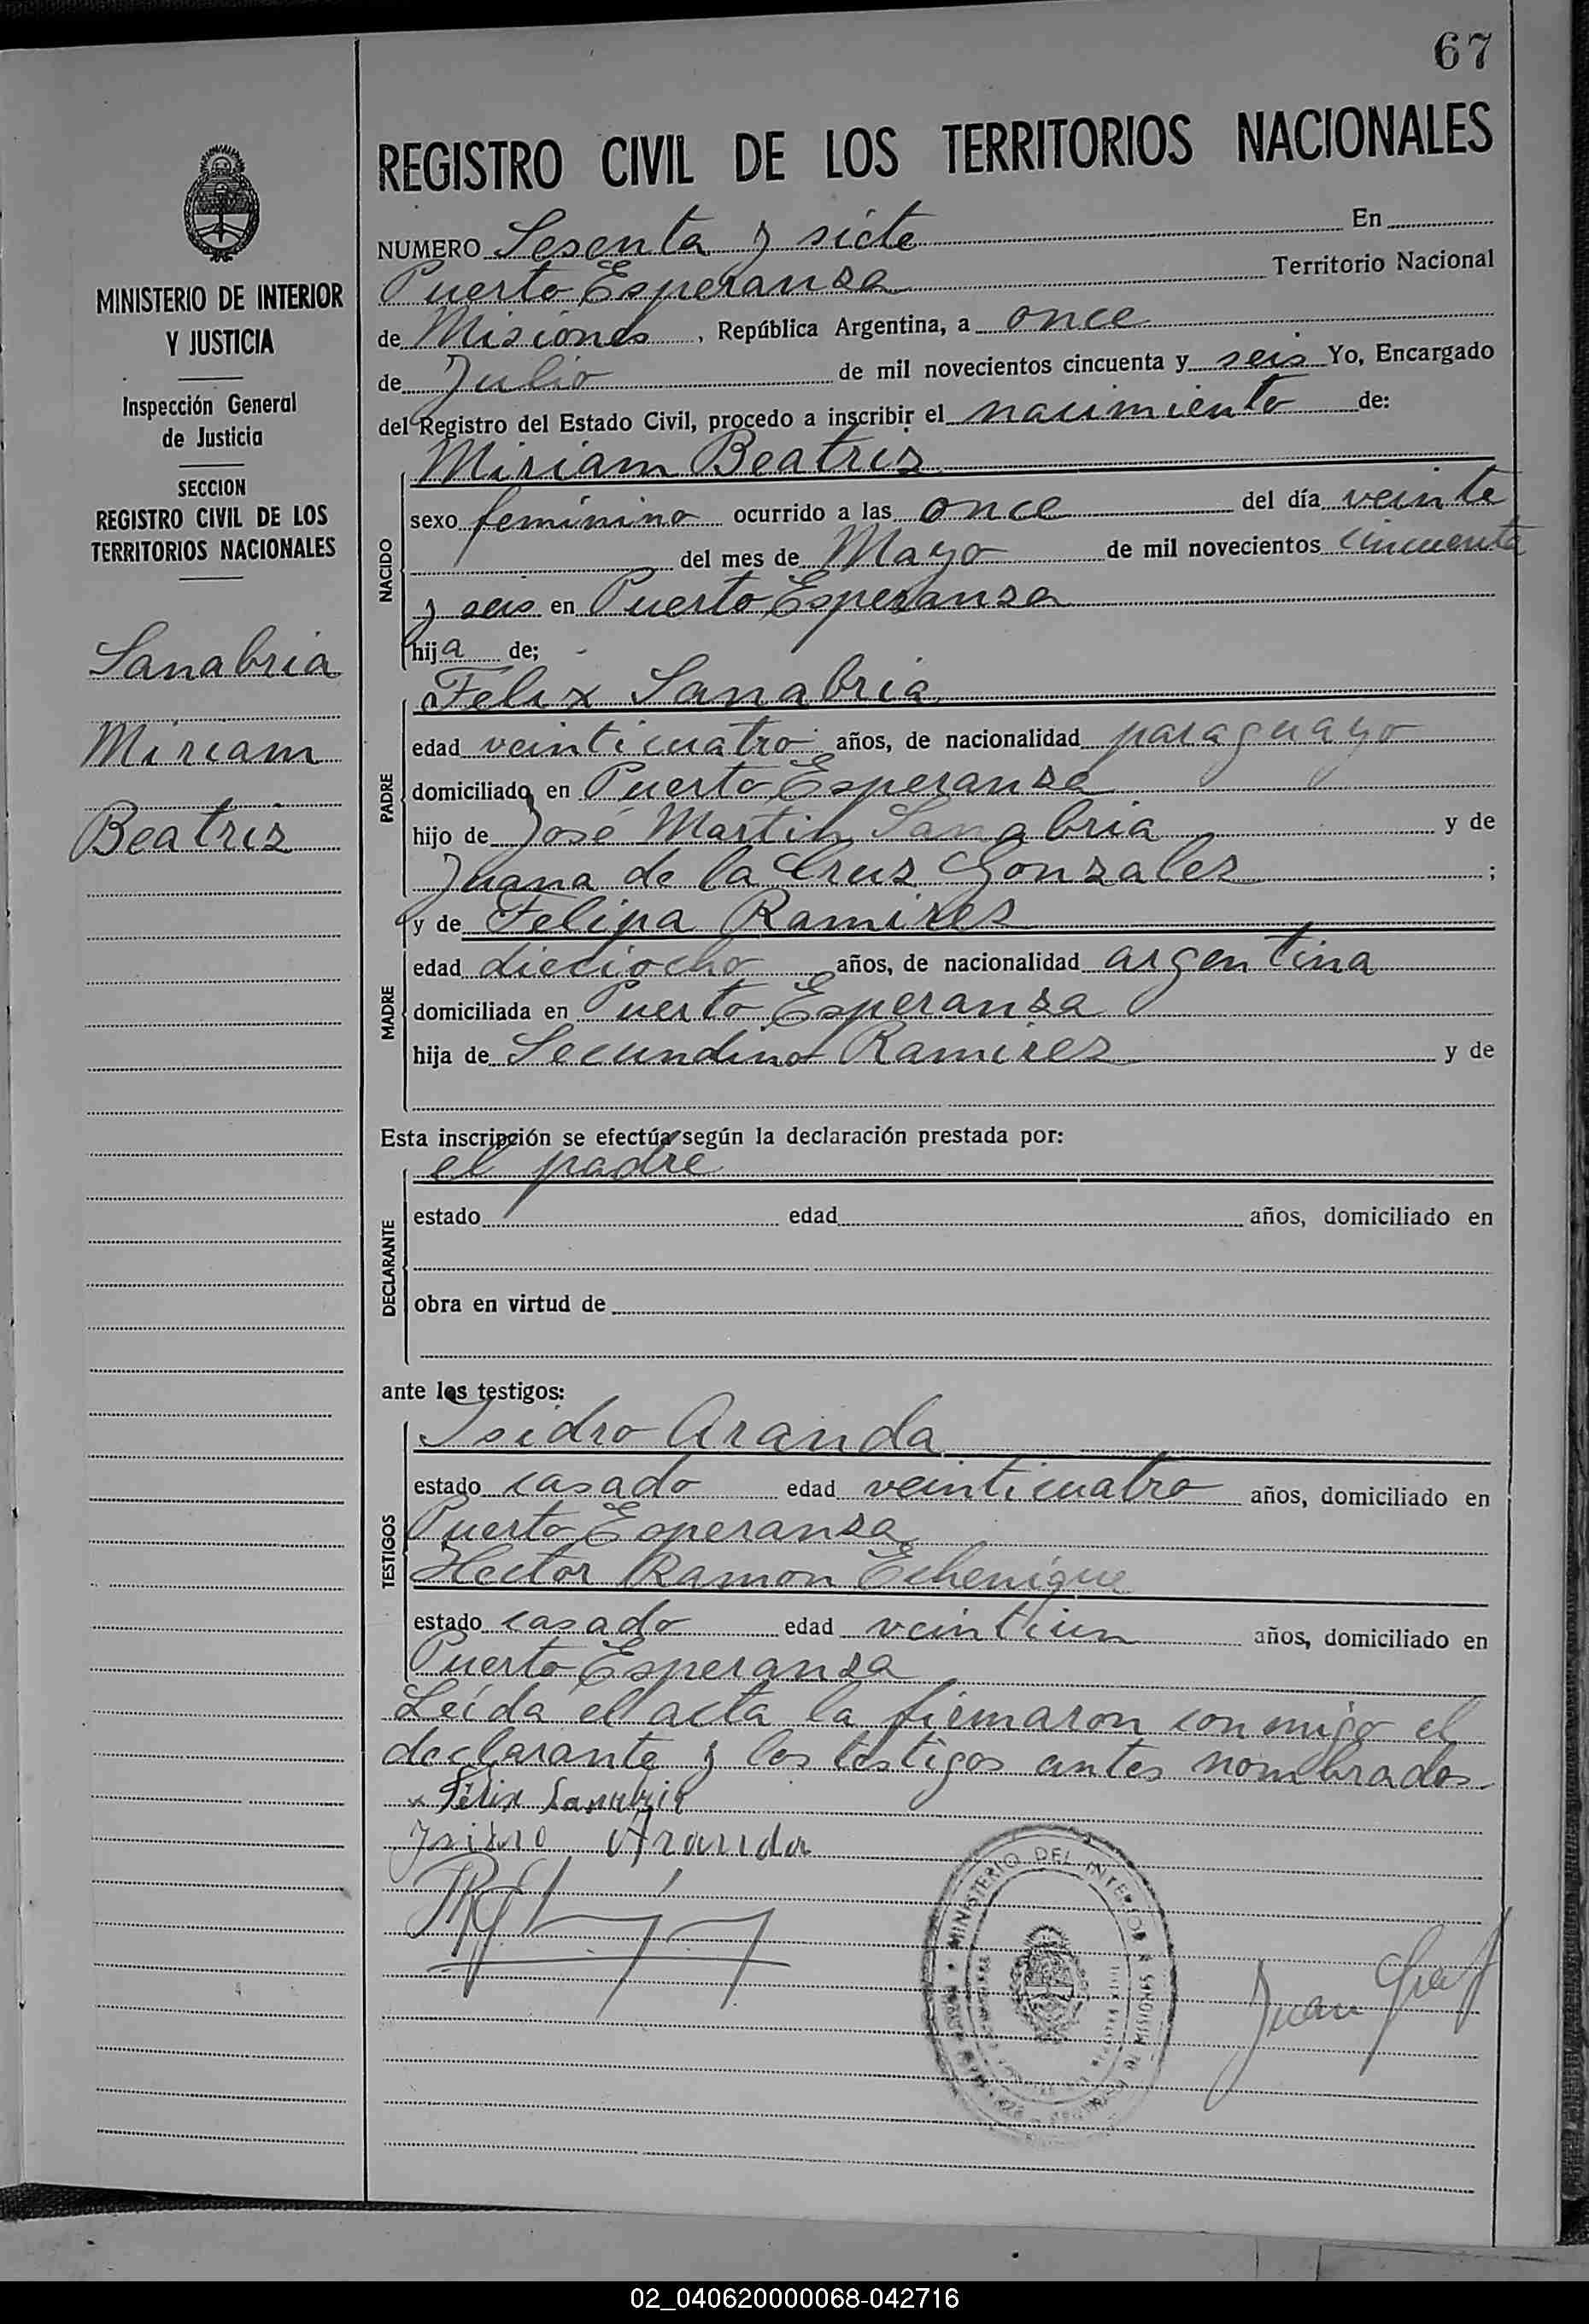 67
REGISTRO CIVIL DE LOS TERRITORIOS NACIONALES
MINISTERIO DE INTERIOR
Y JUSTICIA
Inspección General
de Justicia
SECCION
REGISTRO CIVIL DE LOS
TERRITORIOS NACIONALES
Sanabria
Miriam
Beatris
NUMERO Sesenta y siete En
Puerto Esperansa Territorio Nacional
de Misiones, República Argentina, a once
de Julio de mil novecientos cincuenta y seis Yo, Encargado
del Registro del Estado Civil, procedo a inscribir el nacimiento de:
NACIDO
Miriam Beatris
sexo feminino ocurrido a las once del día veinte
del mes de Mayo de mil novecientos cincuenta
y seis en Puerto Esperansa
hija de;
PADRE
Felix Sanabria
edad veinticuatro años, de nacionalidad paraguayo
domiciliado en Puerto Esperansa
hijo de José Martin Sanabria y de
Juana de la Crus Gonsales ;
y de Felipa Ramires
MADRE
edad dieciocho años, de nacionalidad argentina
domiciliada en Puerto Esperansa
hija de Secundino Ramires y de
Esta inscripción se efectúa según la declaración prestada por:
DECLARANTE
el padre
estado edad años, domiciliado en
obra en virtud de
ante los testigos:
TESTIGOS
Isidro Aranda
estado casado edad veinticuatro años, domiciliado en
Puerto Esperansa
Hector Ramon Echenique
estado casado edad veintiun años, domiciliado en
Puerto Esperansa
Leída el acta la firmaron conmigo el
declarante y los testigos antes nombrados
x Félix Sanabria
Isidro Aranda
MINISTERIO DEL INTERIOR
MISIONES
Juan Graf
02_040620000068-042716